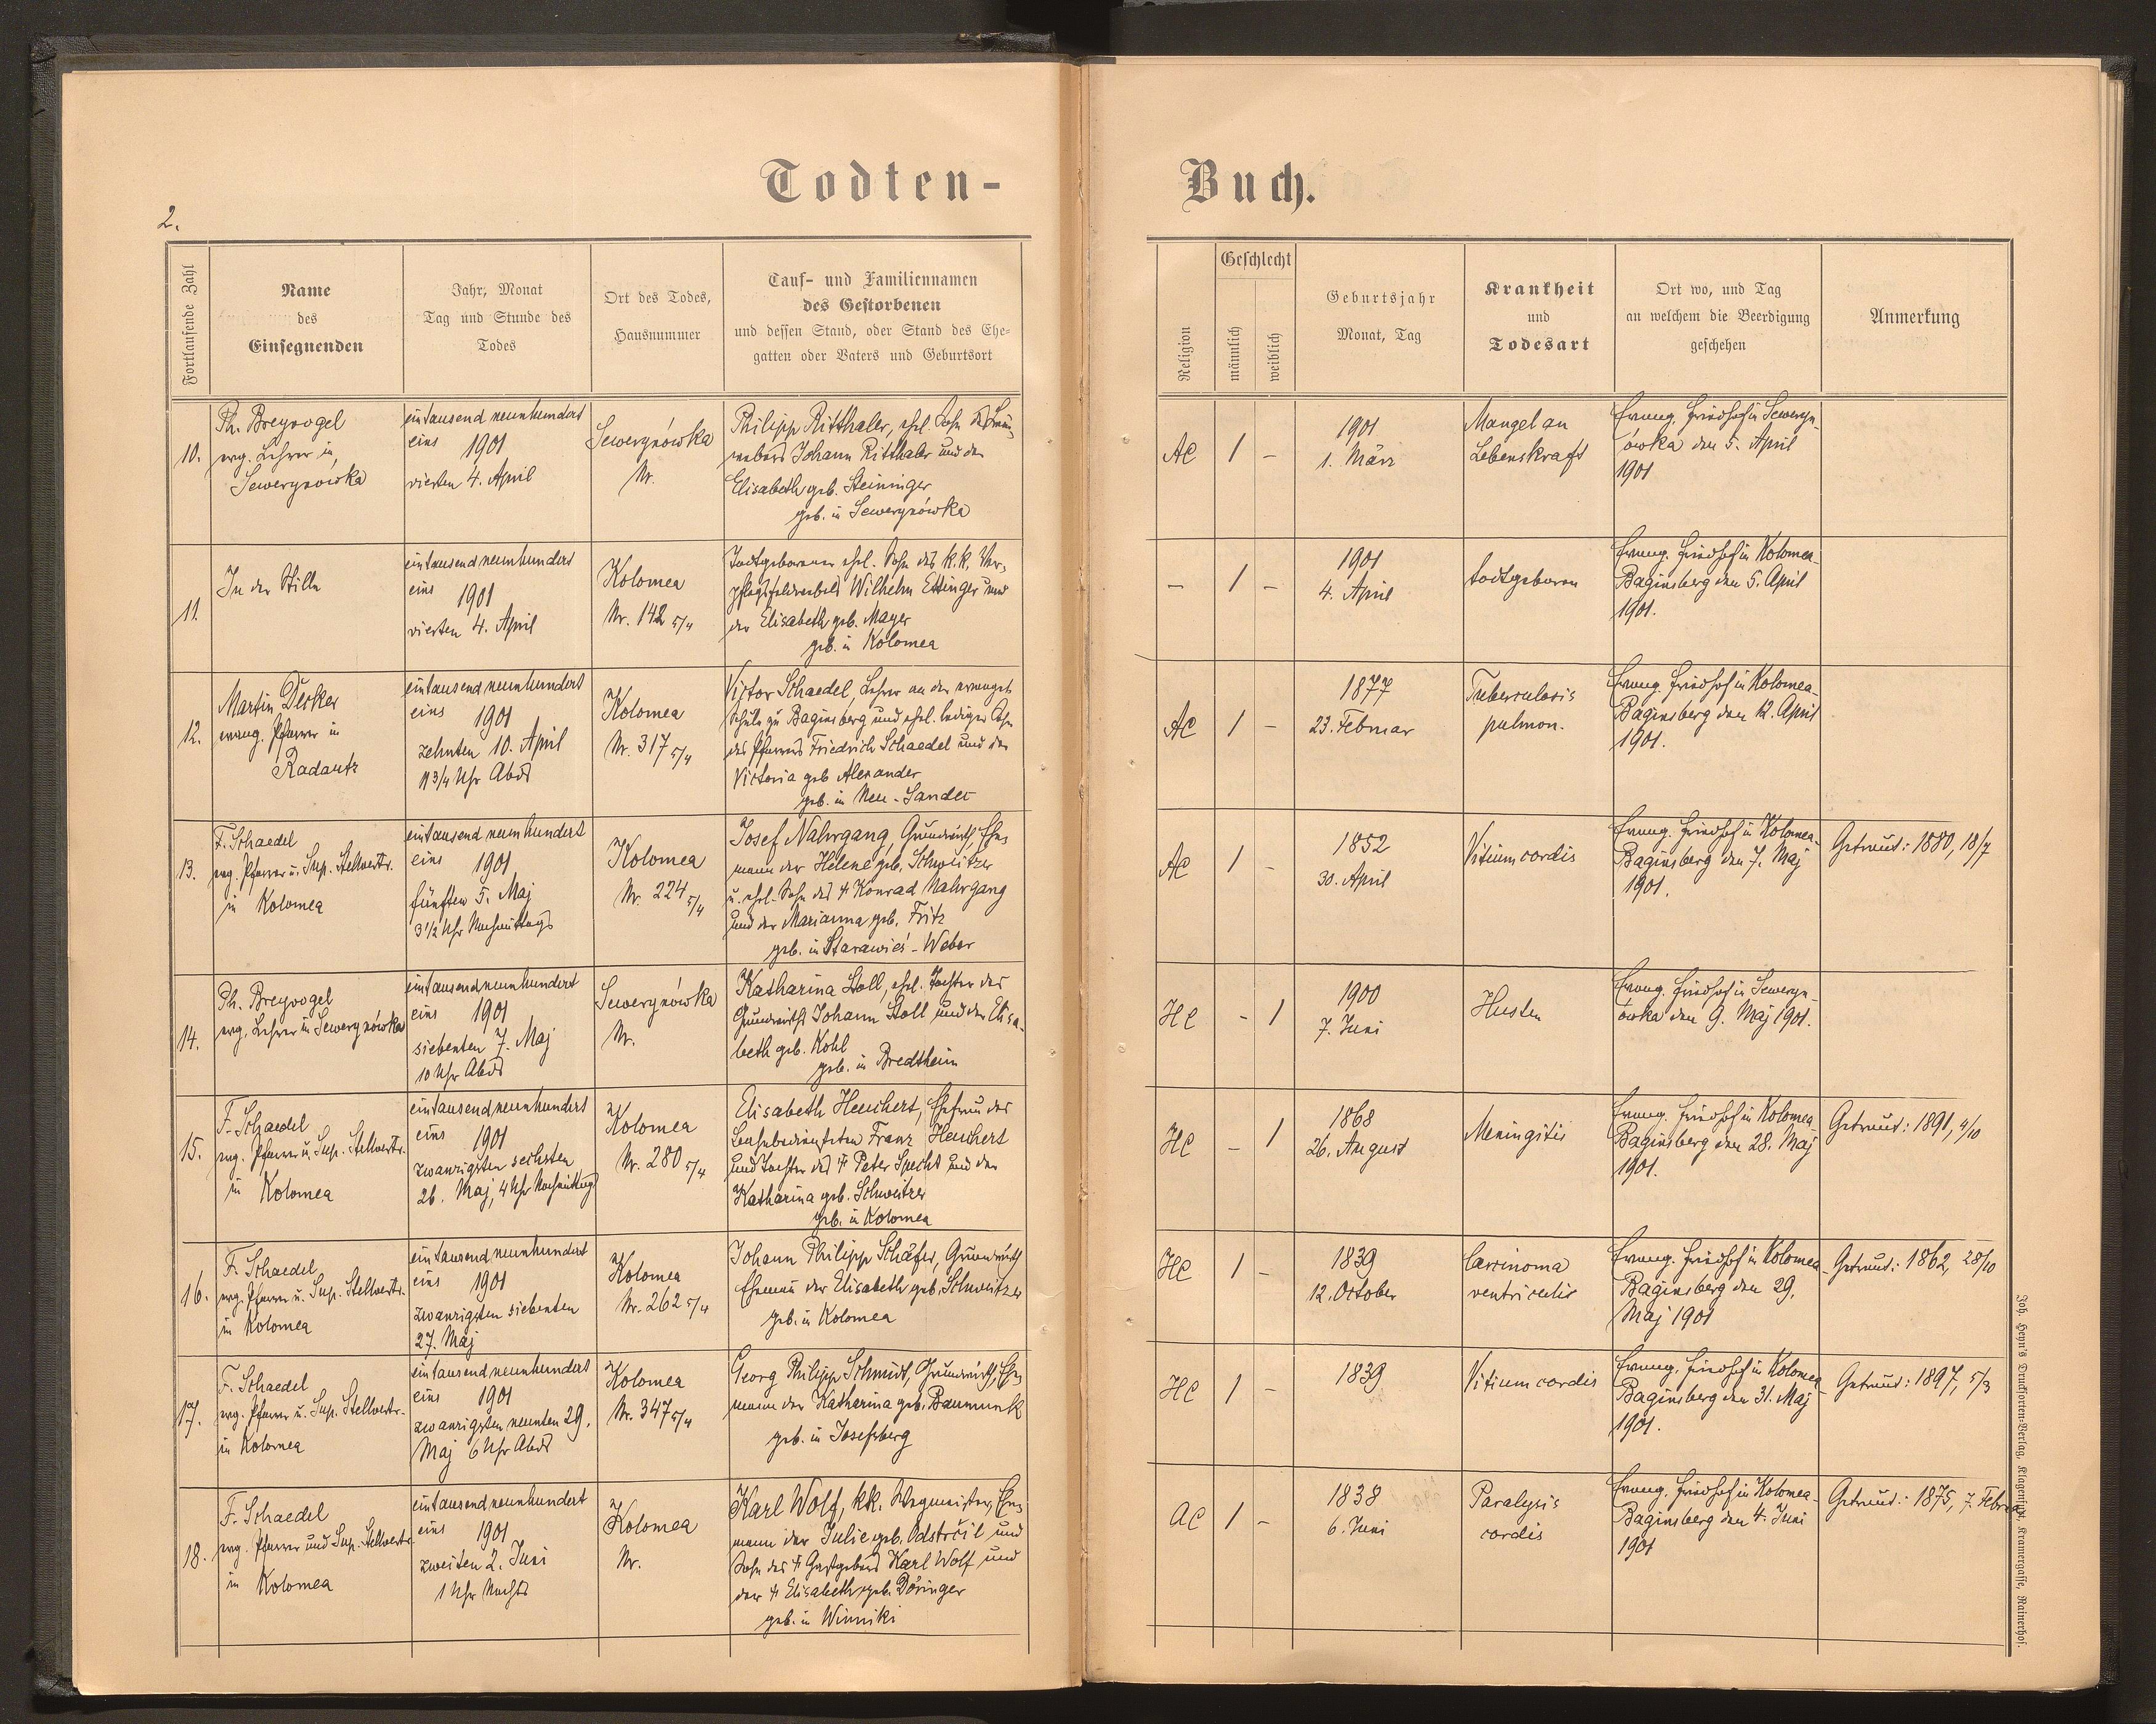 Todten-
Buch.
2.
Fortlaufende Zahl
Name
des
Einsegnenden
Jahr, Monat
Tag und Stunde des
Todes
Ort des Todes,
Hausnummer
Tauf- und Familiennamen
des Gestorbenen
und dessen Stand, oder Stand des Ehe-
gatten oder Vaters und Geburtsort
Religion
Geschlecht
männlich
weiblich
Geburtsjahr
Monat, Tag
Krankheit
und
Todesart
Ort wo, und Tag
an welchem die Beerdigung
geschehen
Anmerkung
10.
Ph. Breyvogel
evg. Lehrer in
Sewerynówka
eintausend neunhundert
eins 1901
vierten 4. April
Sewerynówka
Nr.
Philipp Ritthaler, ehel. Sohn des
Johann Ritthaler und der
Elisabeth geb. Steininger
geb. in Sewerynówka
AC
1
-
1901
1. März
Mangel an
Lebenskraft
Evang. Friedhof in Seweryn-
ówka den 5. April
1901
11.
In der Stille
eintausend neunhundert
eins 1901
vierten 4. April
Kolomea
Nr. 142 5/4
Todtgeborener ehel. Sohn des k.k. Ver-
pflegsfeldwebels Wilhelm Ettinger und
der Elisabeth geb. Mayer
geb. in Kolomea
-
1
-
1901
4. April
todtgeboren
Evang. Friedhof in Kolomea-
Baginsberg den 5. April
1901.
12.
Martin Decker
evang. Pfarrer in
Radautz
eintausend neunhundert
eins 1901
zehnten 10. April
11 3/4 Uhr Abds
Kolomea
Nr. 317 5/4
Victor Schaedel Lehrer an der evangel.
Schule zu Baginsberg und ehel. lediger Sohn
des Pfarrers Friedrich Schaedel und der
Victoria geb Alexander
geb. in Neu-Sandec
AC
1
-
1877
23. Februar
Tuberculosis
pulmon.
Evang. Friedhof in Kolomea-
Baginsberg den 12. April
1901.
13.
F. Schaedel
evg. Pfarrer u. Sup. Stellvertr.
in Kolomea
eintausend neunhundert
eins 1901
fünften 5. Maj
3 1/2 Uhr Nachmittags
Kolomea
Nr. 224 5/4
Josef Nahrgang, Grundwirth, Ehe-
mann der Helene geb. Schweitzer
u. ehel. Sohn des † Konrad Nahrgang
und der Marianna geb. Fritz
geb. in Starawieś-Weber
AC
1
-
1852
30. April
Vitium cordis
Evang. Friedhof in Kolomea-
Baginsberg den 7. Maj
1901.
Getraut: 1880, 18/7
14.
Ph. Breyvogel
evg. Lehrer in Sewerynówka
eintausend neunhundert
eins 1901
siebenten 7. Maj
10 Uhr Abds
Sewerynówka
Nr.
Katharina Stoll, ehel. Tochter des
Grundwirths Johann Stoll und der Elisa-
beth geb. Kohl
geb. in Bredtheim
HC
-
1
1900
7. Juni
Husten
Evang. Friedhof in Seweryn-
ówka den 9. Maj 1901.
15.
F. Schaedel
evg. Pfarrer u. Sup. Stellvertr.
in Kolomea
eintausend neunhundert
eins 1901
zwanzigsten sechsten
26. Maj, 4 Uhr Nachmittags
Kolomea
Nr. 280 5/4
Elisabeth Heuchert, Ehefrau des
Bahnbediensteten Franz Heuchert
und Tochter des † Peter Specht und der
Katharina geb. Schweitzer
geb. in Kolomea
HC
-
1
1868
26. August
Meningitis
Evang. Friedhof in Kolomea-
Baginsberg den 28. Maj
1901.
Getraut: 1891, 4/10
16.
F. Schaedel
evg. Pfarrer u. Sup. Stellvertr.
in Kolomea
eintausend neunhundert
eins 1901
zwanzigsten siebenten
27. Maj
Kolomea
Nr. 262 5/4
Johann Philipp Schäfer, Grundwirth
Ehemann der Elisabeth geb. Schweitzer
geb. in Kolomea
HC
1
-
1839
12. October
Carcinoma
ventriculis
Evang. Friedhof in Kolomea-
Baginsberg den 29.
Maj 1901
Getraut: 1862, 28/10
17.
F. Schaedel
evg. Pfarrer u. Sup. Stellvertr.
in Kolomea
eintausend neunhundert
eins 1901
zwanzigsten neunten 29.
Maj 6 Uhr Abds
Kolomea
Nr. 347 5/4
Georg Philipp Schmidt, Grundwirth, Ehe-
mann der Katharina geb. Baumunk
geb. in Josefsberg
HC
1
-
1839
Vitium cordis
Evang. Friedhof in Kolomea-
Baginsberg den 31. Maj
1901.
Getraut: 1897, 5/3
18.
F. Schaedel
evg. Pfarrer und Sup. Stellvertr.
in Kolomea
eintausend neunhundert
eins 1901
zweiten 2. Juni
1 Uhr Nachts
Kolomea
Nr.
Karl Wolf, kk. Wegmeister, Ehe-
mann der Julie geb. Odstrčil und
Sohn des † Gastgebers Karl Wolf und
der † Elisabeth geb. Döringer
geb. in Winniki
AC
1
-
1838
6. Juni
Paralysis
cordis
Evang. Friedhof in Kolomea-
Baginsberg den 4. Juni
1901
Getraut: 1875, 7. Februar
Joh. Heyn's Drucksorten-Verlag, Klagenfurt, Kramergasse, Rainerhof.